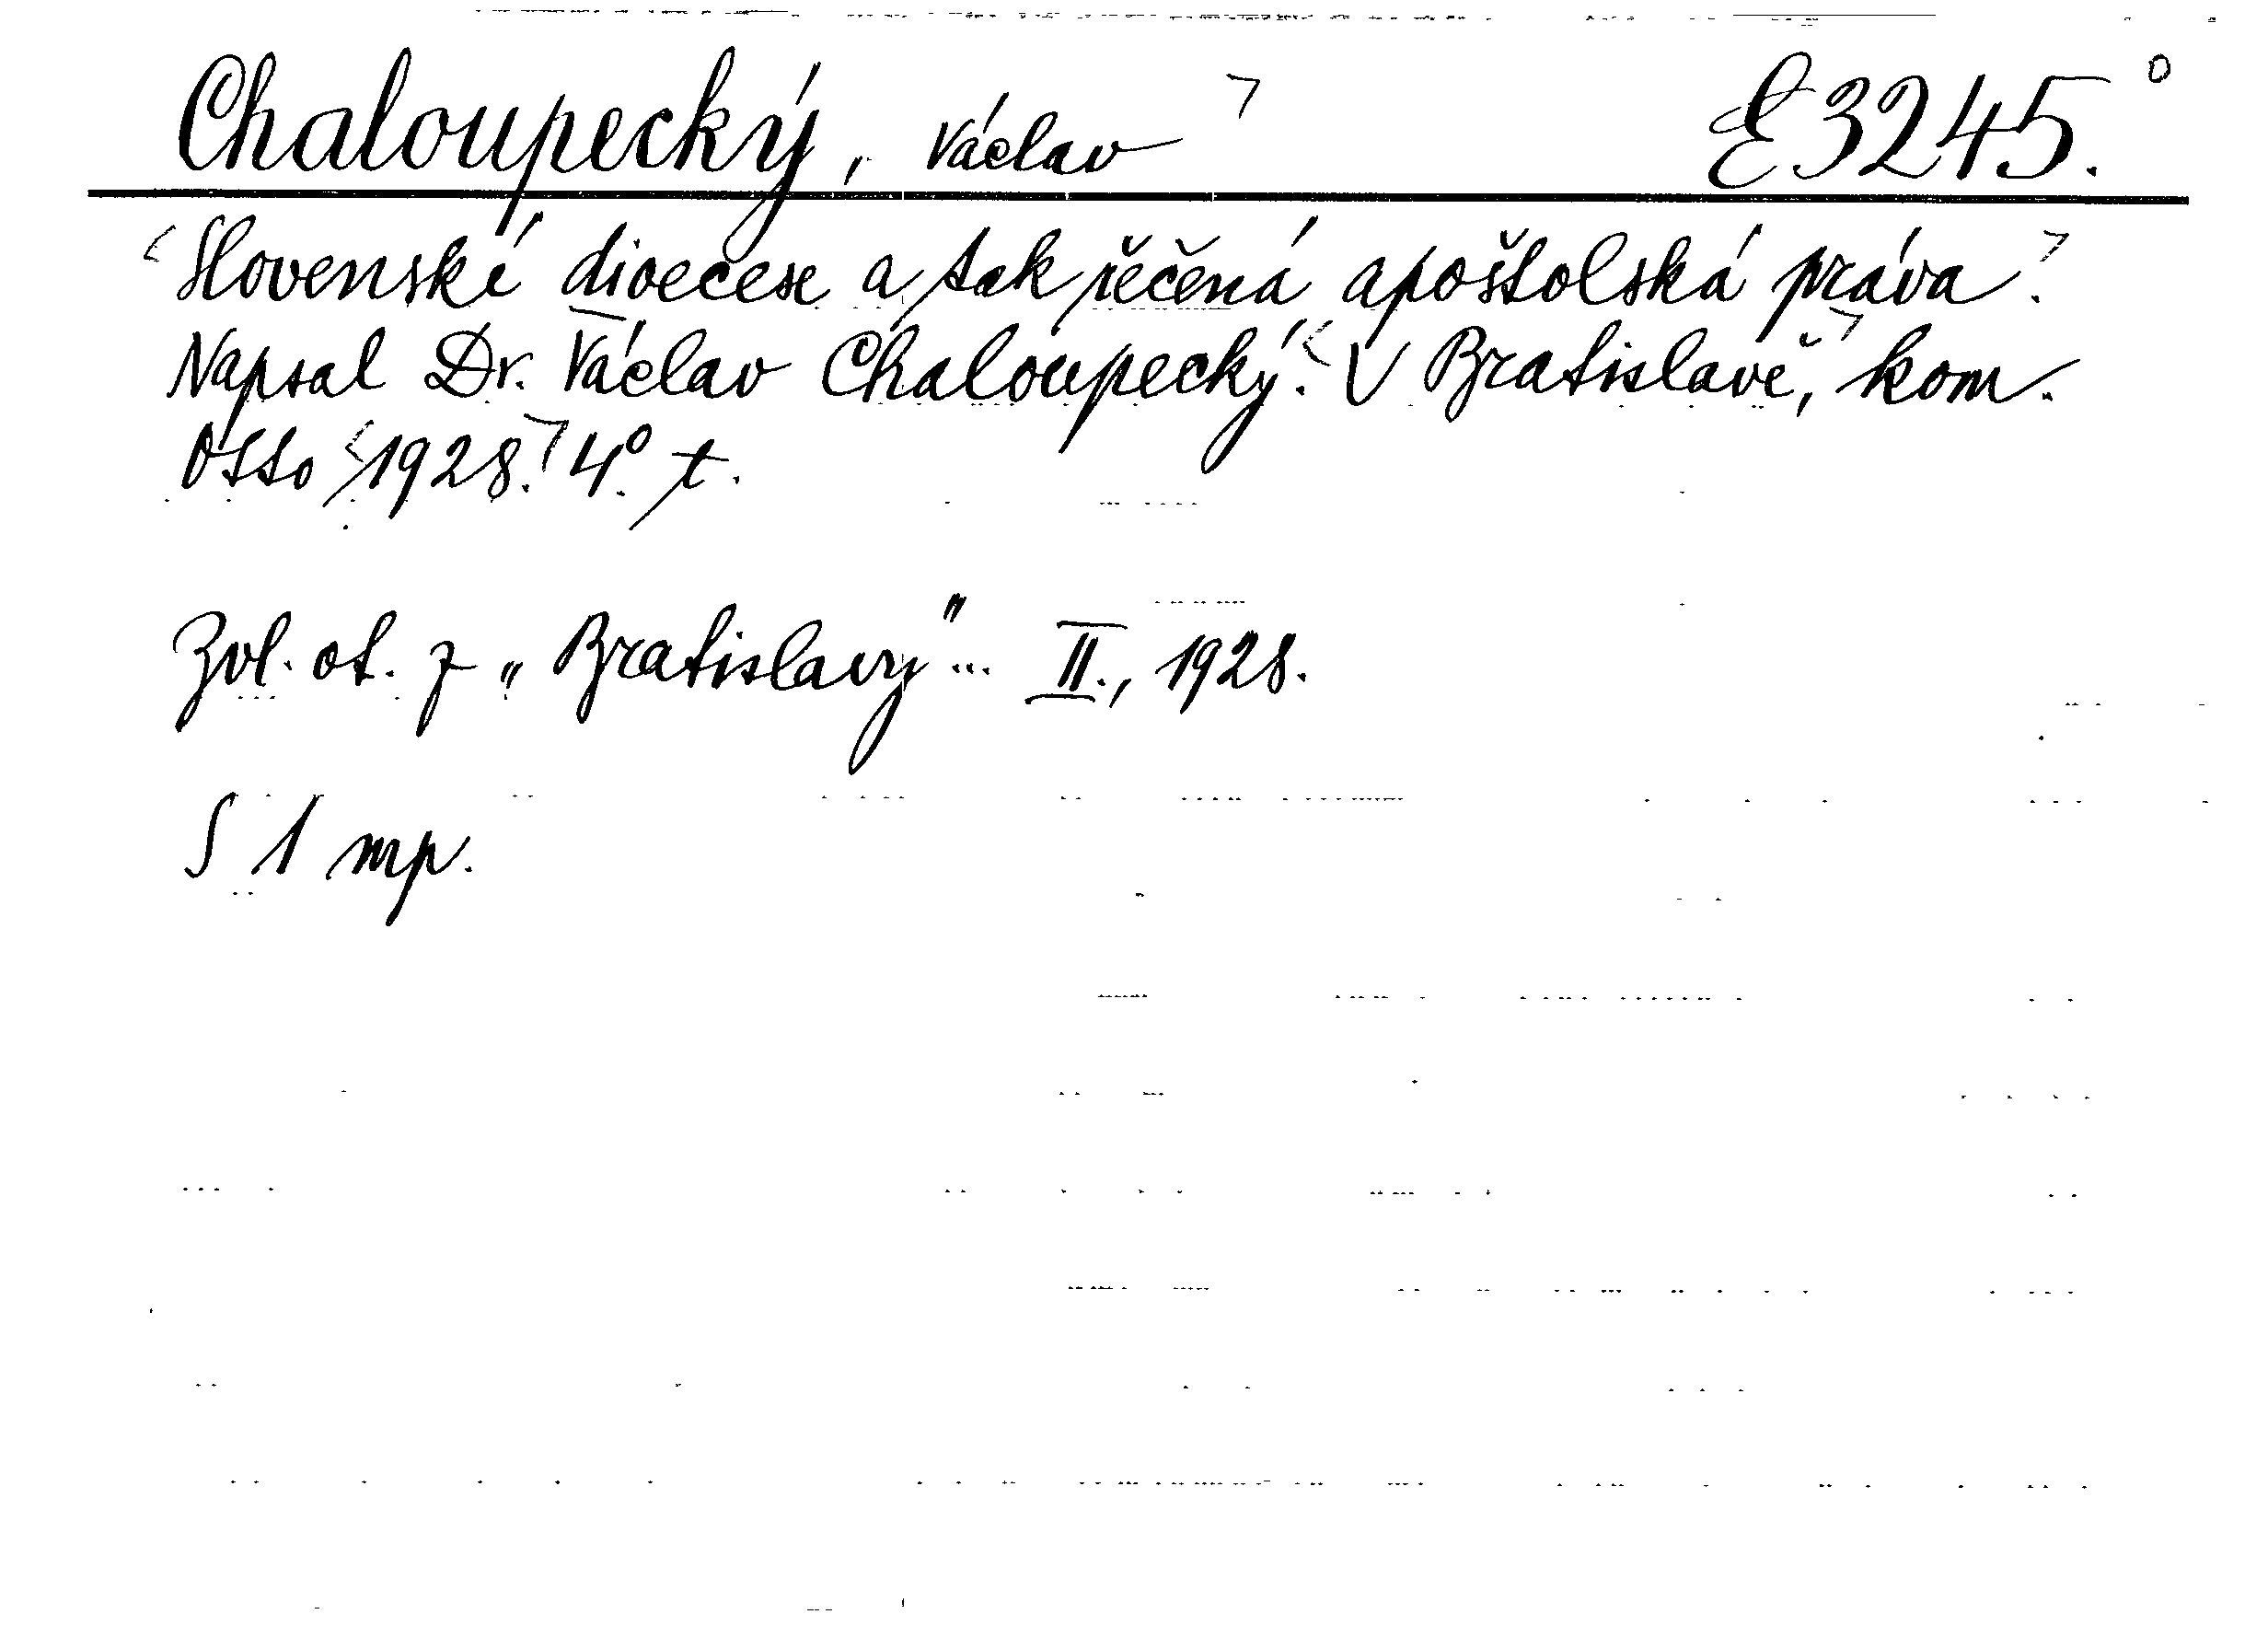 Chaloupecký, Václav E 3245.
Slovenské dioecese a tak řečená apoštolská práva.
Napsal Dr. Václav Chaloupecký. V Bratislavě, kom.
Otto 1928. 4° t.
Zvl. ot. z „Bratislavy"... II., 1928.
S 1 mp.